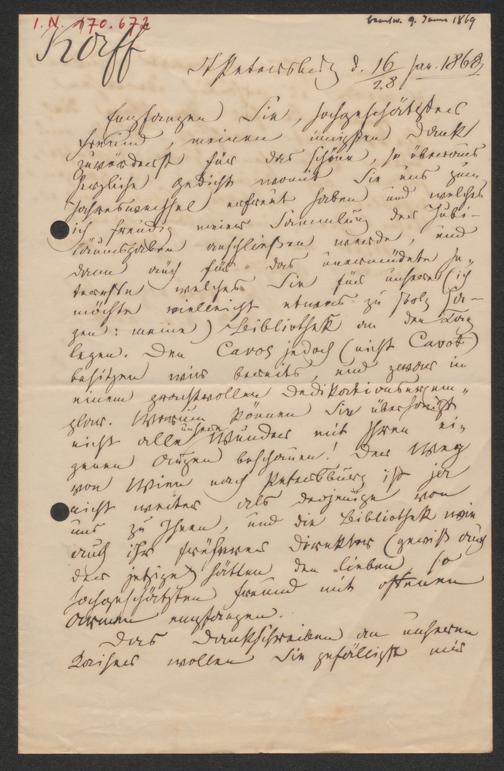 I.N. 170.672
beantw. 9. Jänn 1869
Korff
St Petersburg d. 16/28 Jan. 1868.
Empfangen Sie, hochgeschätzter
Freund, meinen innigsten Dank
zuvörderst für das schöne, so überaus
herzliche Gedicht womit Sie uns zum
Jahreswechsel erfreut haben und welches
ich freudig meiner Sammlung der Jubi-
läumsgaben anschließen werde, und
dann auch für das unermüdete In-
teresse welches Sie für unsere (ich
möchte vielleicht etwas zu stolz sa-
gen: meine) Bibliothek an den Tag
legen. Den Cavos jedoch (nicht Cavot)
besitzen wir bereits, und zwar in
einem prachtvollen Dedikationsexem-
plar. Warum können Sie überhaupt
nicht alle unsere Wunder mit Ihren ei-
genen Augen beschauen! Der Weg
von Wien nach Petersburg ist ja
nicht weiter als derjenige von
uns zu Ihnen, und die Bibliothek wie
auch ihr früherer Direktor (gewiß auch
der jetzige) hätten den lieben, so
hochgeschätzten Freund mit offenen
Armen empfangen.
Das Dankschreiben an unseren
Kaiser wollen Sie gefälligst mir